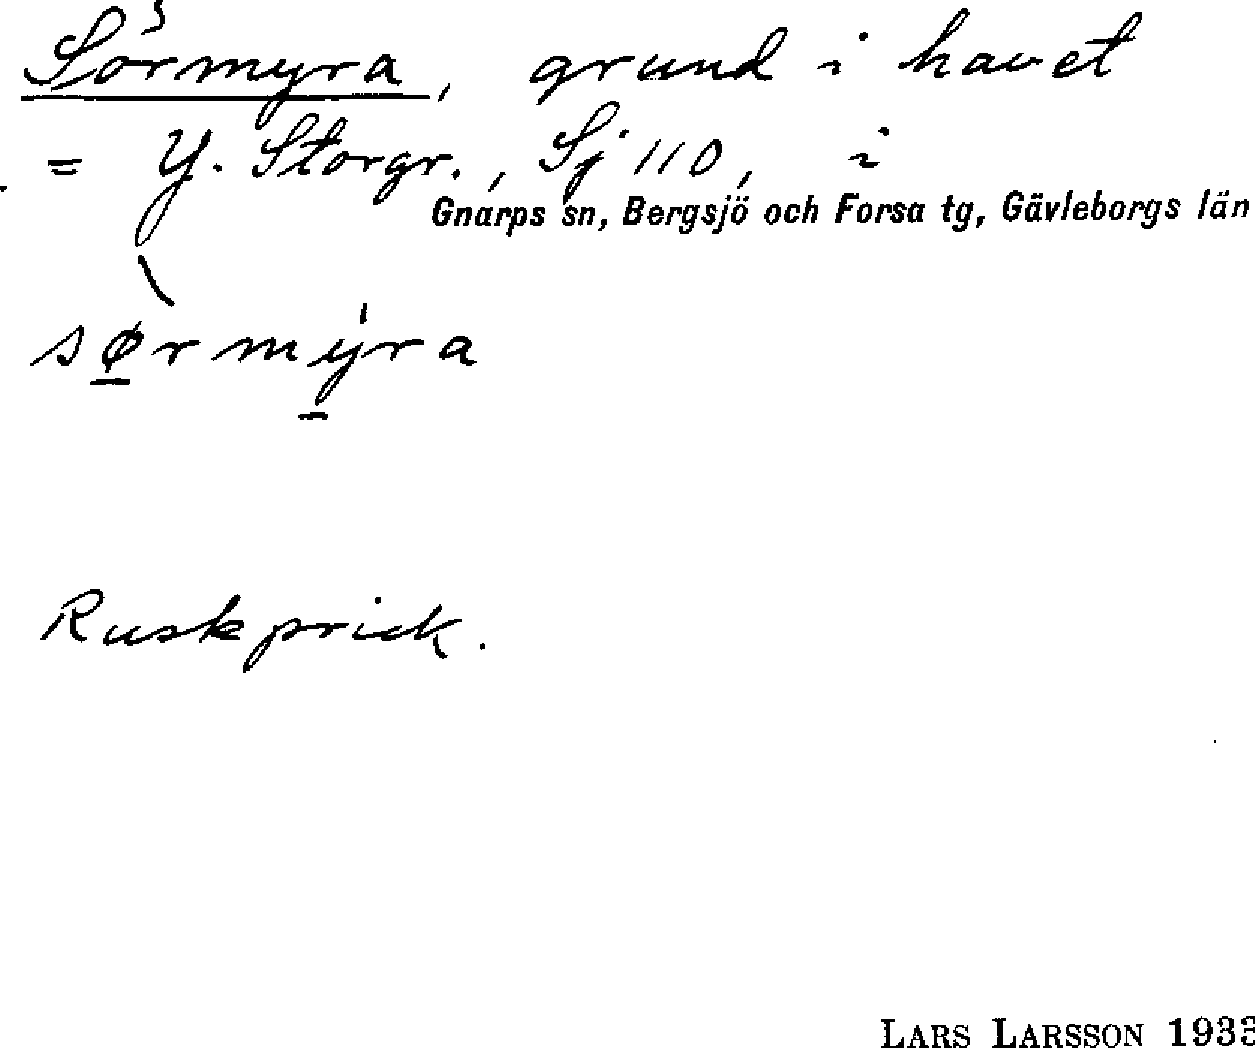 Sörmyra, grund i havet
= Y. Storgr., Sj 110, i
Gnarps sn, Bergsjö och Forsa tg, Gävleborgs län
sørmýra
Ruskprick.
LARS LARSSON 1933